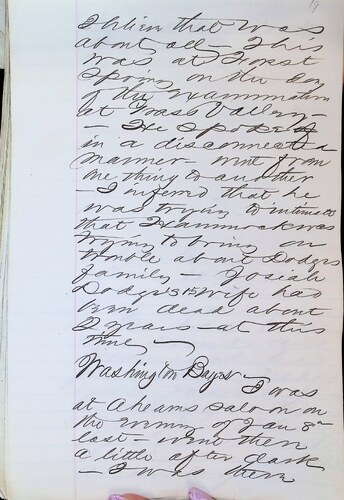 19
I believe that was
about all — This
was at Forest
Spring on the day
of the examination
at Grass Valley —
— He spoke
in a disconnected
manner — went from
one thing to another
— I inferred that he
was trying to intimate
that Hammock was
trying to bring on
trouble about Dodges
family — Josiah
Dodge's 1st wife had
been dead about
2 years — at this
time —
Washington — I was
at Ahearns saloon on
the evening of Jan 8th
last — went there
a little after dark
— I was there